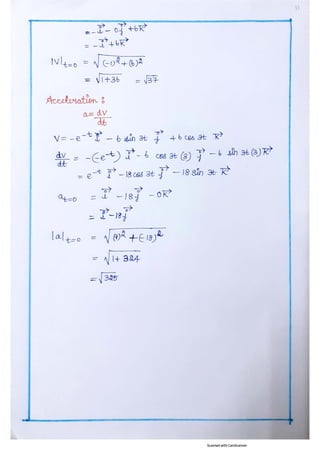 11
= -i⃗ - 0j⃗ + 6k⃗
= -i⃗ + 6k⃗
|V|t=0 = √(-1)² + (6)²
= √1+36 = √37
Acceleration :
a = dv/dt
V = -e^-t i⃗ - 6 sin 3t j⃗ + 6 cos 3t k⃗
dv/dt = -(-e^-t) i⃗ - 6 cos 3t (3) j⃗ - 6 sin 3t (3) k⃗
= e^-t i⃗ - 18 cos 3t j⃗ - 18 sin 3t k⃗
at=0 = i⃗ - 18 j⃗ - 0k⃗
= i⃗ - 18j⃗
|a|t=0 = √(1)² + (-18)²
= √1 + 324
= √325
Scanned with CamScanner